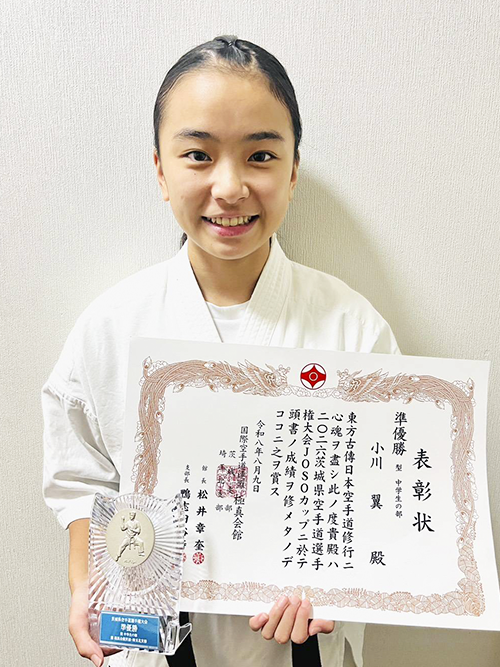 表彰状
準優勝 型 中学生の部
小川 翼 殿
東方古傳日本空手道修行ニ
心魂ヲ盡シ此ノ度貴殿ハ
二〇二六茨城県空手道選手
権大会JOSOカップニ於テ
頭書ノ成績ヲ修メタノデ
ココニ之ヲ賞ス
令和八年八月九日
国際空手道連盟極真会館
館長 松井章奎
支部長
準優勝